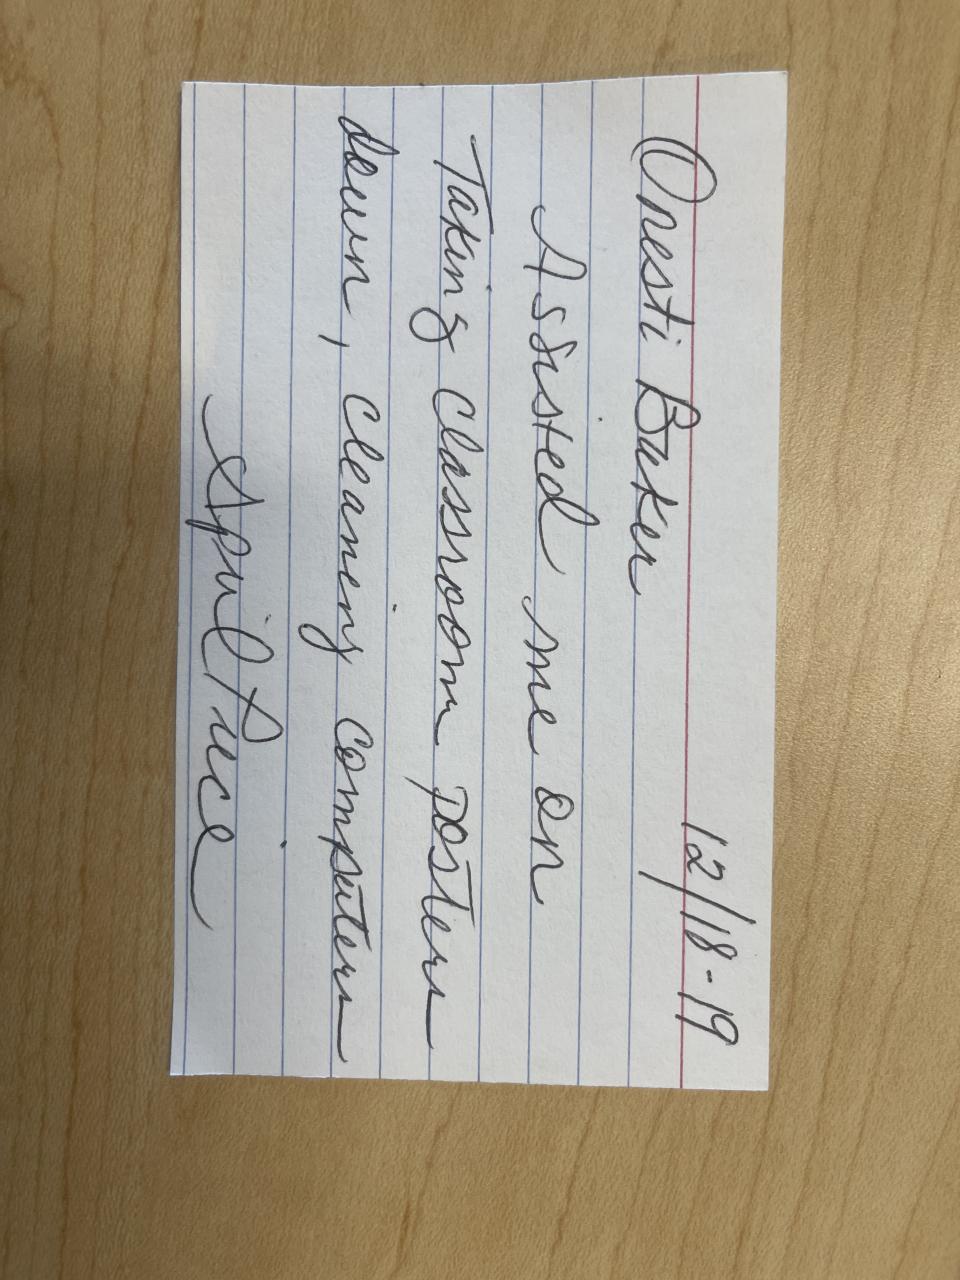 12/18-19
Onesti Baker
Assisted me on
Taking Classroom posters
down, cleaning computers
April Price